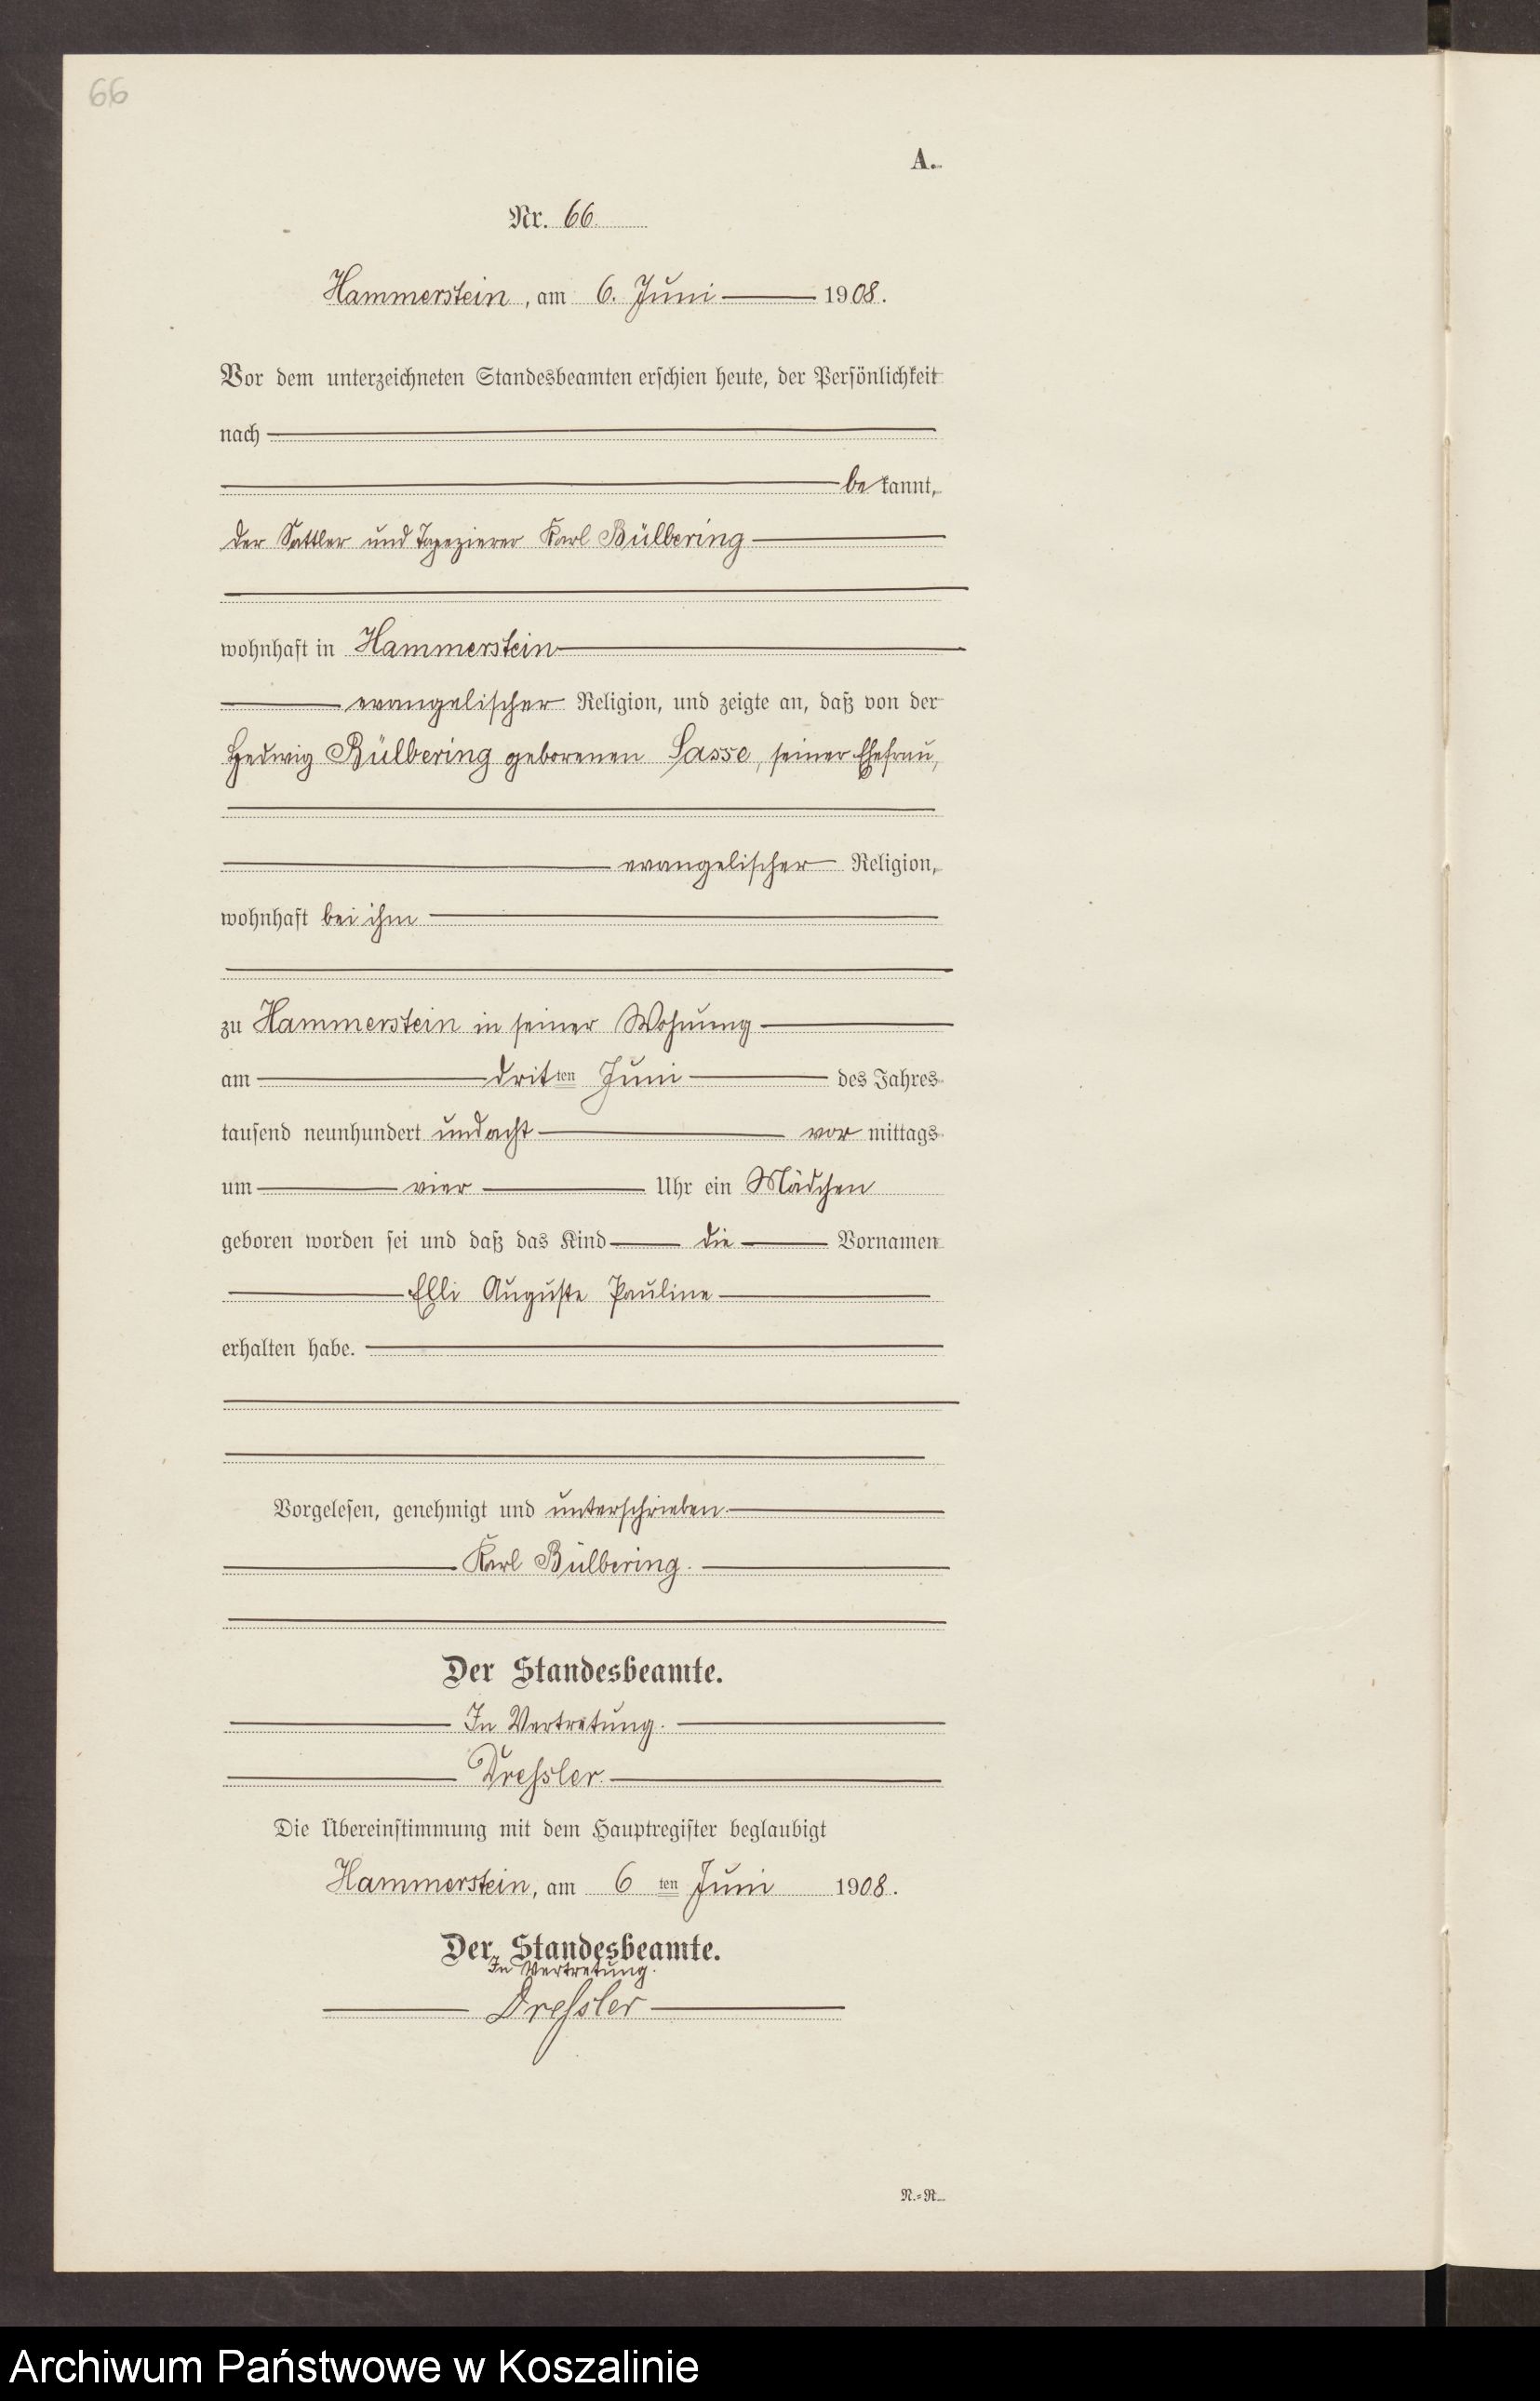 66
A.
Nr. 66.
Hammerstein, am 6. Juni 1908.
Vor dem unterzeichneten Standesbeamten erschien heute, der Persönlichkeit
nach
be kannt,
der Sattler und Tapezierer Karl Bülbering
wohnhaft in Hammerstein
evangelischer Religion, und zeigte an, daß von der
Hedwig Bülbering geborenen Sasse, seiner Ehefrau,
evangelischer Religion,
wohnhaft bei ihm
zu Hammerstein in seiner Wohnung
am dritten Juni des Jahres
tausend neunhundert undacht vor mittags
um vier Uhr ein Mädchen
geboren worden sei und daß das Kind die Vornamen
Elli Auguste Pauline
erhalten habe.
Vorgelesen, genehmigt und unterschrieben.
Karl Bülbering.
Der Standesbeamte.
In Vertretung.
Dressler.
Die Übereinstimmung mit dem Hauptregister beglaubigt
Hammerstein, am 6 ten Juni 1908.
Der Standesbeamte.
In Vertretung.
Dressler
N.=R.
Archiwum Państwowe w Koszalinie